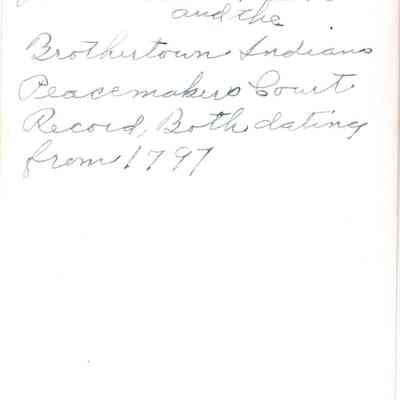 and the
Brothertown Indians
Peacemakers Court
Record, Both dating
from 1797